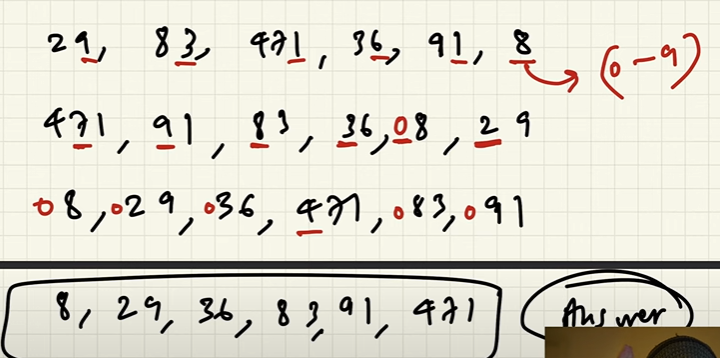 29, 83, 471, 36, 91, 8 → (0-9)
471, 91, 83, 36, 08, 29
08, 029, 036, 471, 083, 091
8, 29, 36, 83, 91, 471 Answer